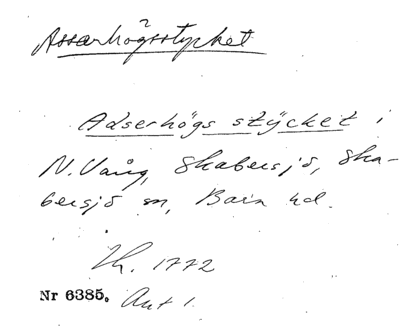 Assarhögsstycket
Adserhögs stÿcket i
N. Vång, Skabersjö, Ska-
bersjö sn, Bara hd.
Lh. 1772
Nr 6385. Akt 1.